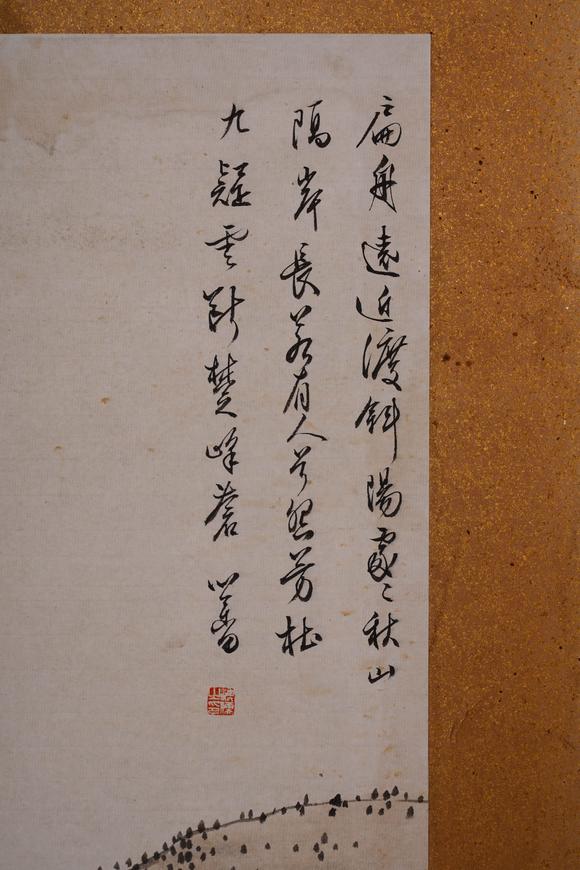 扁舟遠近渡斜陽處〻秋山
隔岸長若有人兮怨芳杜
九疑雲斷楚峰蒼 心畬